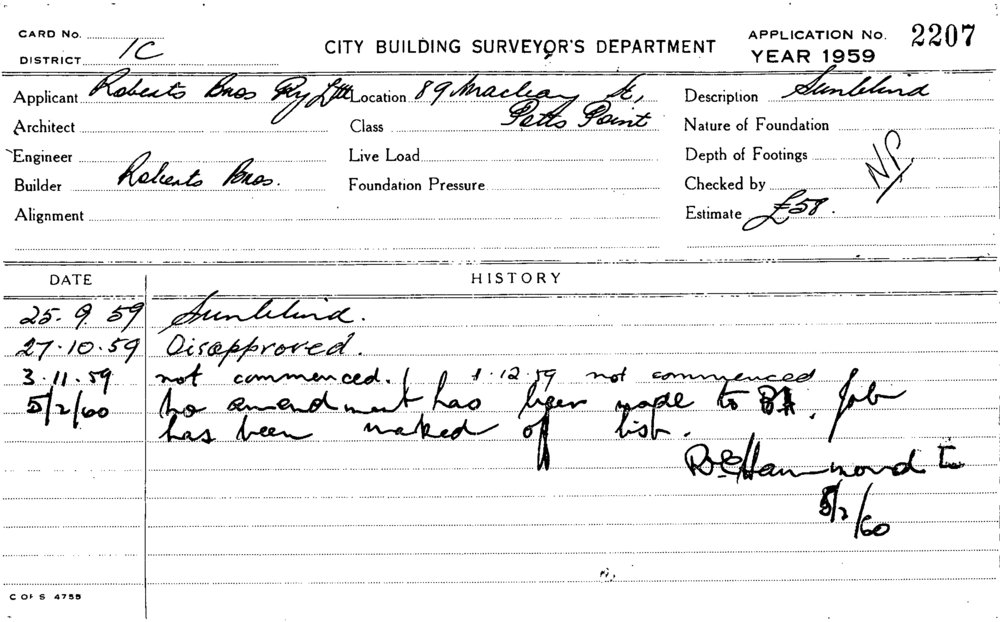 CARD No.
DISTRICT 1C
CITY BUILDING SURVEYOR'S DEPARTMENT
APPLICATION No. 2207
YEAR 1959
Applicant Roberts Bros Pty Ltd Location 89 Macleay St, Description Sunblind
Architect Class Potts Point Nature of Foundation
Engineer Live Load Depth of Footings NP
Builder Roberts Bros. Foundation Pressure Checked by
Alignment Estimate £58.
DATE HISTORY
25.9.59 Sunblind.
27.10.59 Disapproved.
3.11.59 not commenced. 1.12.59 not commenced
5/2/60 No amendment has been made to BA. Job
has been marked off list.
Hammond
5/2/60
C OF S 4755